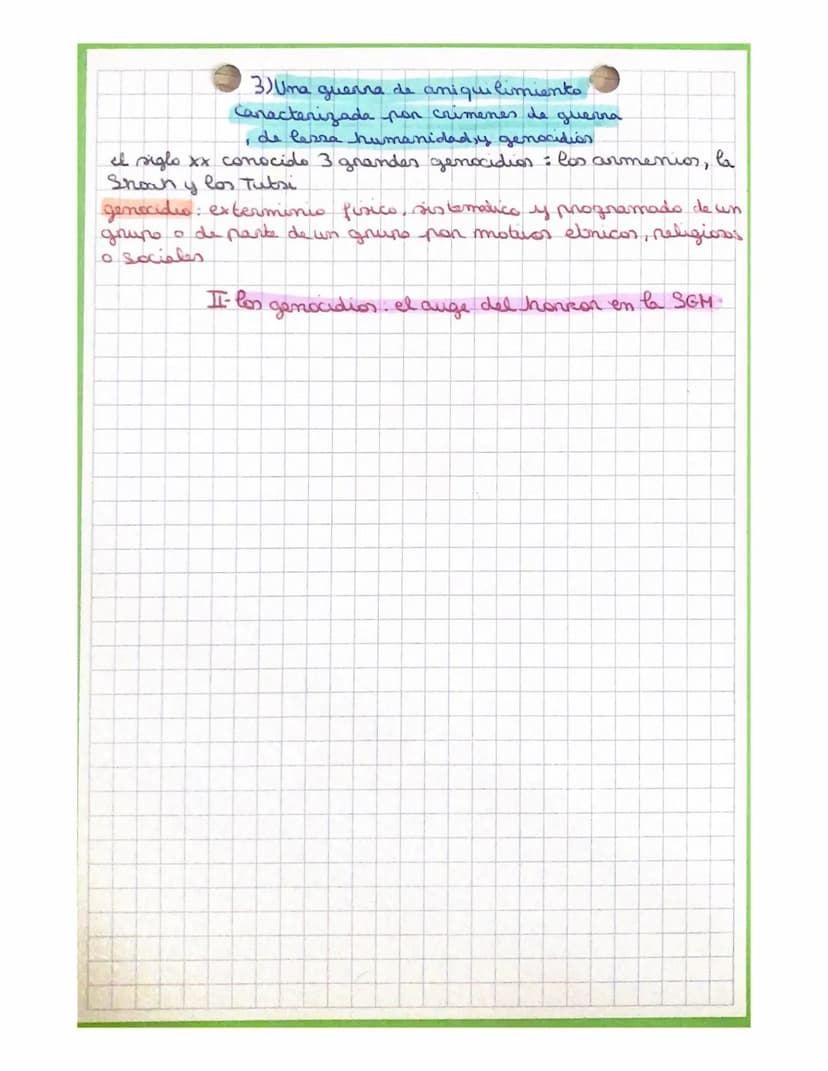 3) Una guerra de aniquilimiento
caracterizada por crimenes de guerra
, de lessa humanidad, y genocidios
el siglo xx conocido 3 grandes genocidios : los armenios, la
Shoah y los Tutsi
genocidio : exterminio físico, sistemático y programado de un
grupo o de parte de un grupo por motivos etnicos, religiosos
o sociales
II- los genocidios : el auge del horror en la SGM